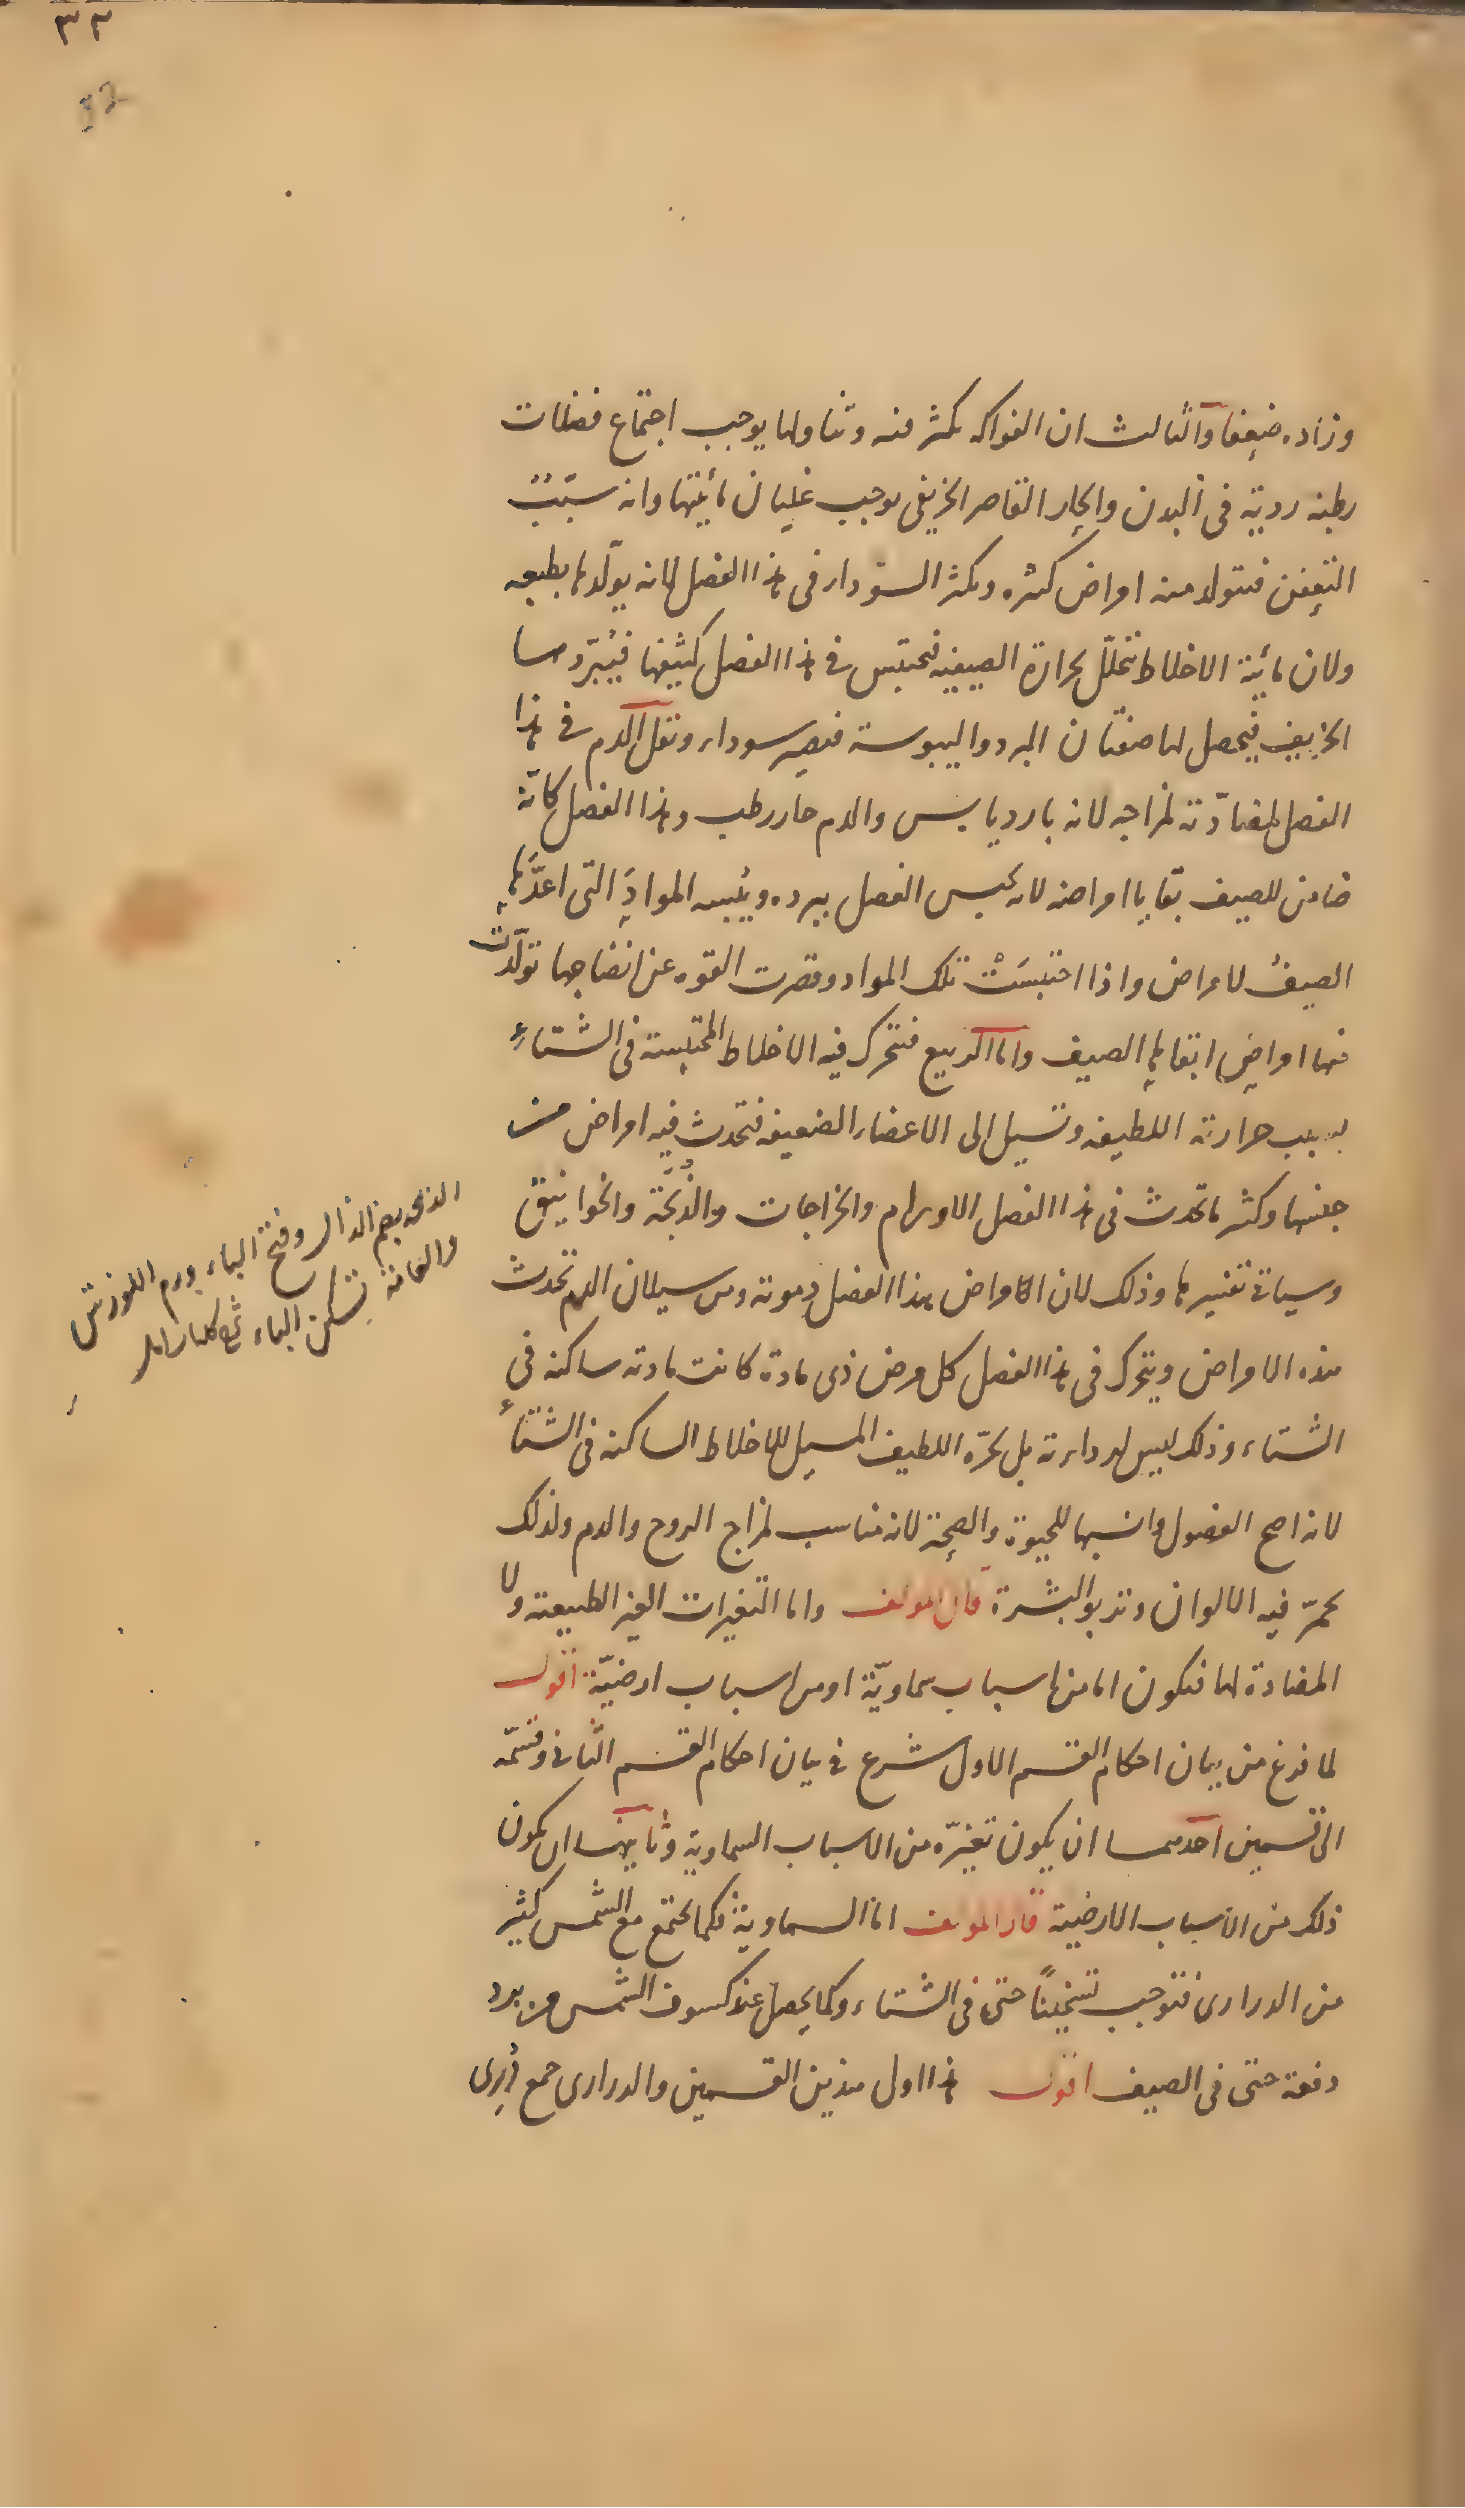 ٣٢
32
وزاده ضعفا والثالث ان الفواكه يكثر فيه وتناولها يوجب اجتماع فضلات
رطبة ردية في البدن والحار القاصر الخريفى يوجب غليان مائيتها وانه سبب
التعفن فيتولد منه امراض كثيره ويكثر السوداء فى هذا الفصل لانه يولّدها بطبعه
ولان مائية الاخلاط تتحلّل بحرارة الصيفيه فيحتبس فى هذا الفصل كثيفها فيبرد
الخريف فيحصل لها صفتان البرد واليبوسة فيصير سوداء ويقل الدم فى هذا
الفصل لمضادّته لمزاجه لانه بارد يابس والدم حار رطب وهذا الفصل كانّه
ضامن للصيف بقايا امراضه لانه يحبس الفصل ببرده ويبسه الموادَ التى اعدَّها
الصيفُ لامراض واذا احتبسَتْ تلك المواد وقصرت القوه عن انضاجها تولّدت
منها امراض ابقاها الصيف واما الربيع فتتحرك فيه الاخلاط المحتبسة فى الشتاءِ
بسبب حرارته اللطيفه وتسيل الى الاعضاء الضعيفه فتحدث فيه امراض من
جنسها وكثر ما تحدث فى هذا الفصل الاورام والخراجات والذُّبَحَة والخوانيق
وسياتى تفسيرها وذلك لان الامراض بهذا الفصل دموية ومن سيلان الدم تحدث
هذه الامراض ويتحرك فى هذا الفصل كل مرض ذى مادة كانت مادته ساكنه فى
الشتاء وذلك ليس لرداءته بل لحرّه اللطيف المسيل للاخلاط الساكنه فى الشتاء
لانه اصح الفصول وانسبها للحيوة والصحة لانه مناسب لمزاج الروح والدم ولذلك
يحمرّ فيه الالوان وتربو البشرة قال المولف واما التغيرات الغير الطبيعية ولا
المضادة لها فيكون اما من اسباب سماويّة او من اسباب ارضيّة اقول
لما فرغ من بيان احكام القسم الاول شرع فى بيان احكام القسم الثانى وقسّمه
الى قسمين احدهما ان يكون تغيّره من الاسباب السماوية وثانيهما ان يكون
ذلك من الاسباب الارضية قال المولف اما السماوية فكما يجتمع مع الشمس كثير
من الدرارى فتوجب تسخينًا حتى فى الشتاء وكما يحصل عند كسوف الشمس من برد
دفعة حتى فى الصيف اقول هذا اول هذين القسمين والدرارى جمع دُرِى
الذبحه بضم الذال وفتح الباء ورم اللوزتين
والعامّة تسكن الباء